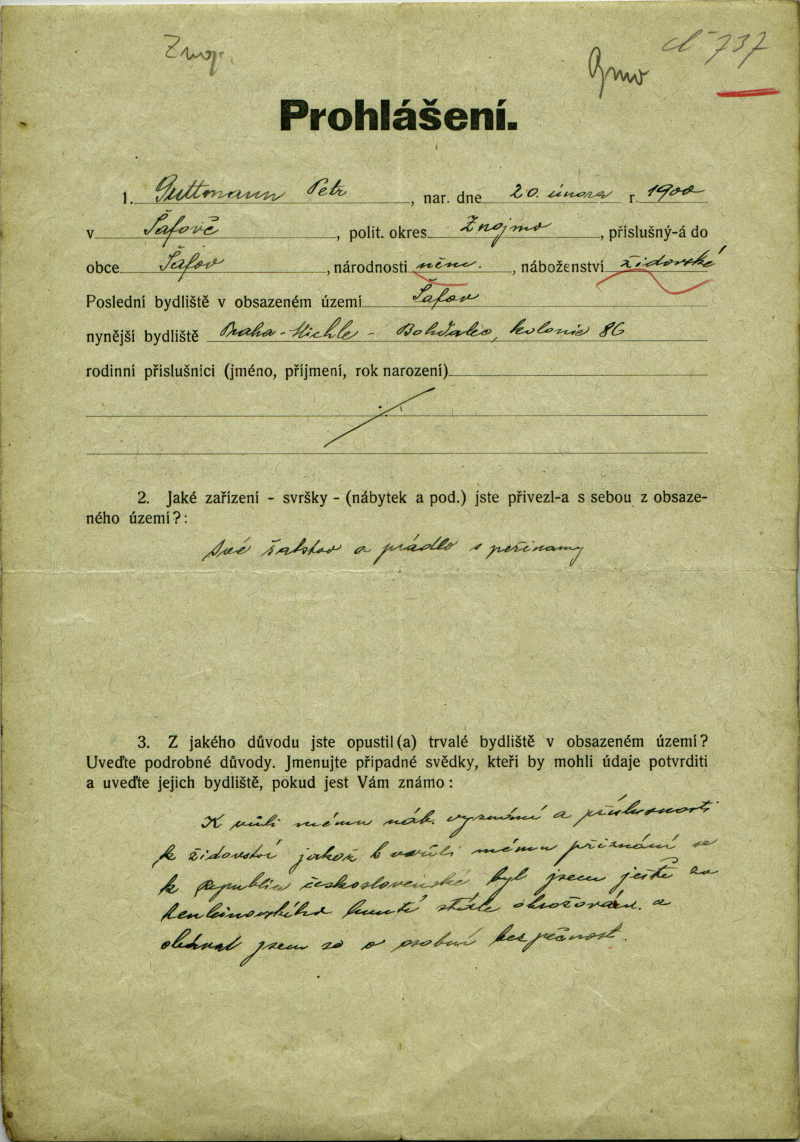 Znoj.
čl 737
Prohlášení.
1. Guttmann Petr, nar. dne 20. února r. 1900
v Šafově, polit. okres Znojmo, příslušný-á do
obce Šafov, národnosti něm., náboženství židovské
Poslední bydliště v obsazeném území Šafov
nynější bydliště Praha-Michle - Bohdalec, kolonie 86
rodinní příslušníci (jméno, příjmení, rok narození)
2. Jaké zařízení - svršky - (nábytek a pod.) jste přivezl-a s sebou z obsaze-
ného území?:
Své šatstvo a prádlo s peřinamy
3. Z jakého důvodu jste opustil(a) trvalé bydliště v obsazeném území?
Uveďte podrobné důvody. Jmenujte případné svědky, kteří by mohli údaje potvrditi
a uveďte jejich bydliště, pokud jest Vám známo:
K vůli mému náb. vyznání a příslusnosti
k židovství jakož k vůli mému přiznání se
k republice československé byl jsem ještě za
henleinovského hnutí stále ohrožován a
obával jsem se o osobní bezpečnost.